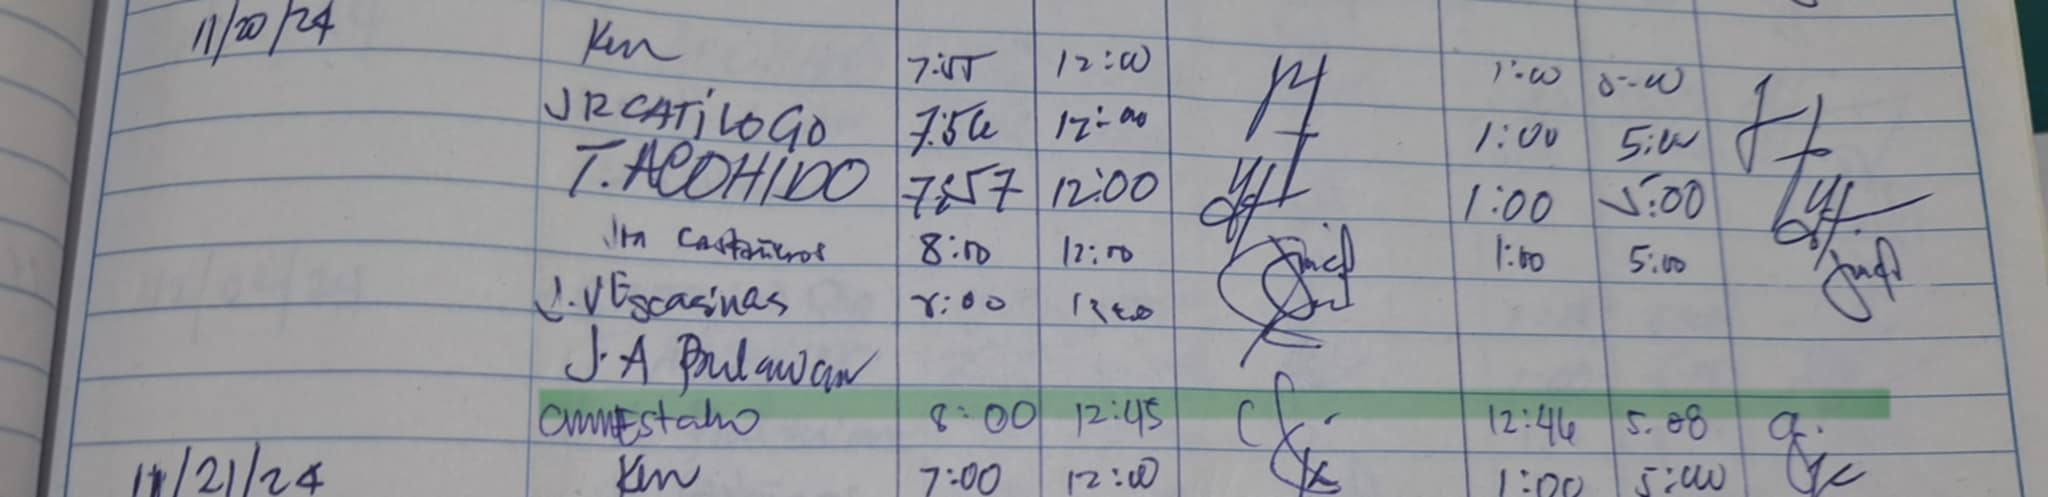 11/20/24 Ken 7:55 12:00 1:00 5:00
JR CATiLOGO 7:56 12:00 1:00 5:00
T. ACOHIDO 7:57 12:00 1:00 5:00
Castañeros 8:00 12:00 1:00 5:00
J. VEscasinas 8:00 12:00
J. A Bulawan
8:00 12:45 12:46 5:08
11/21/24 Ken 7:00 12:00 1:00 5:00